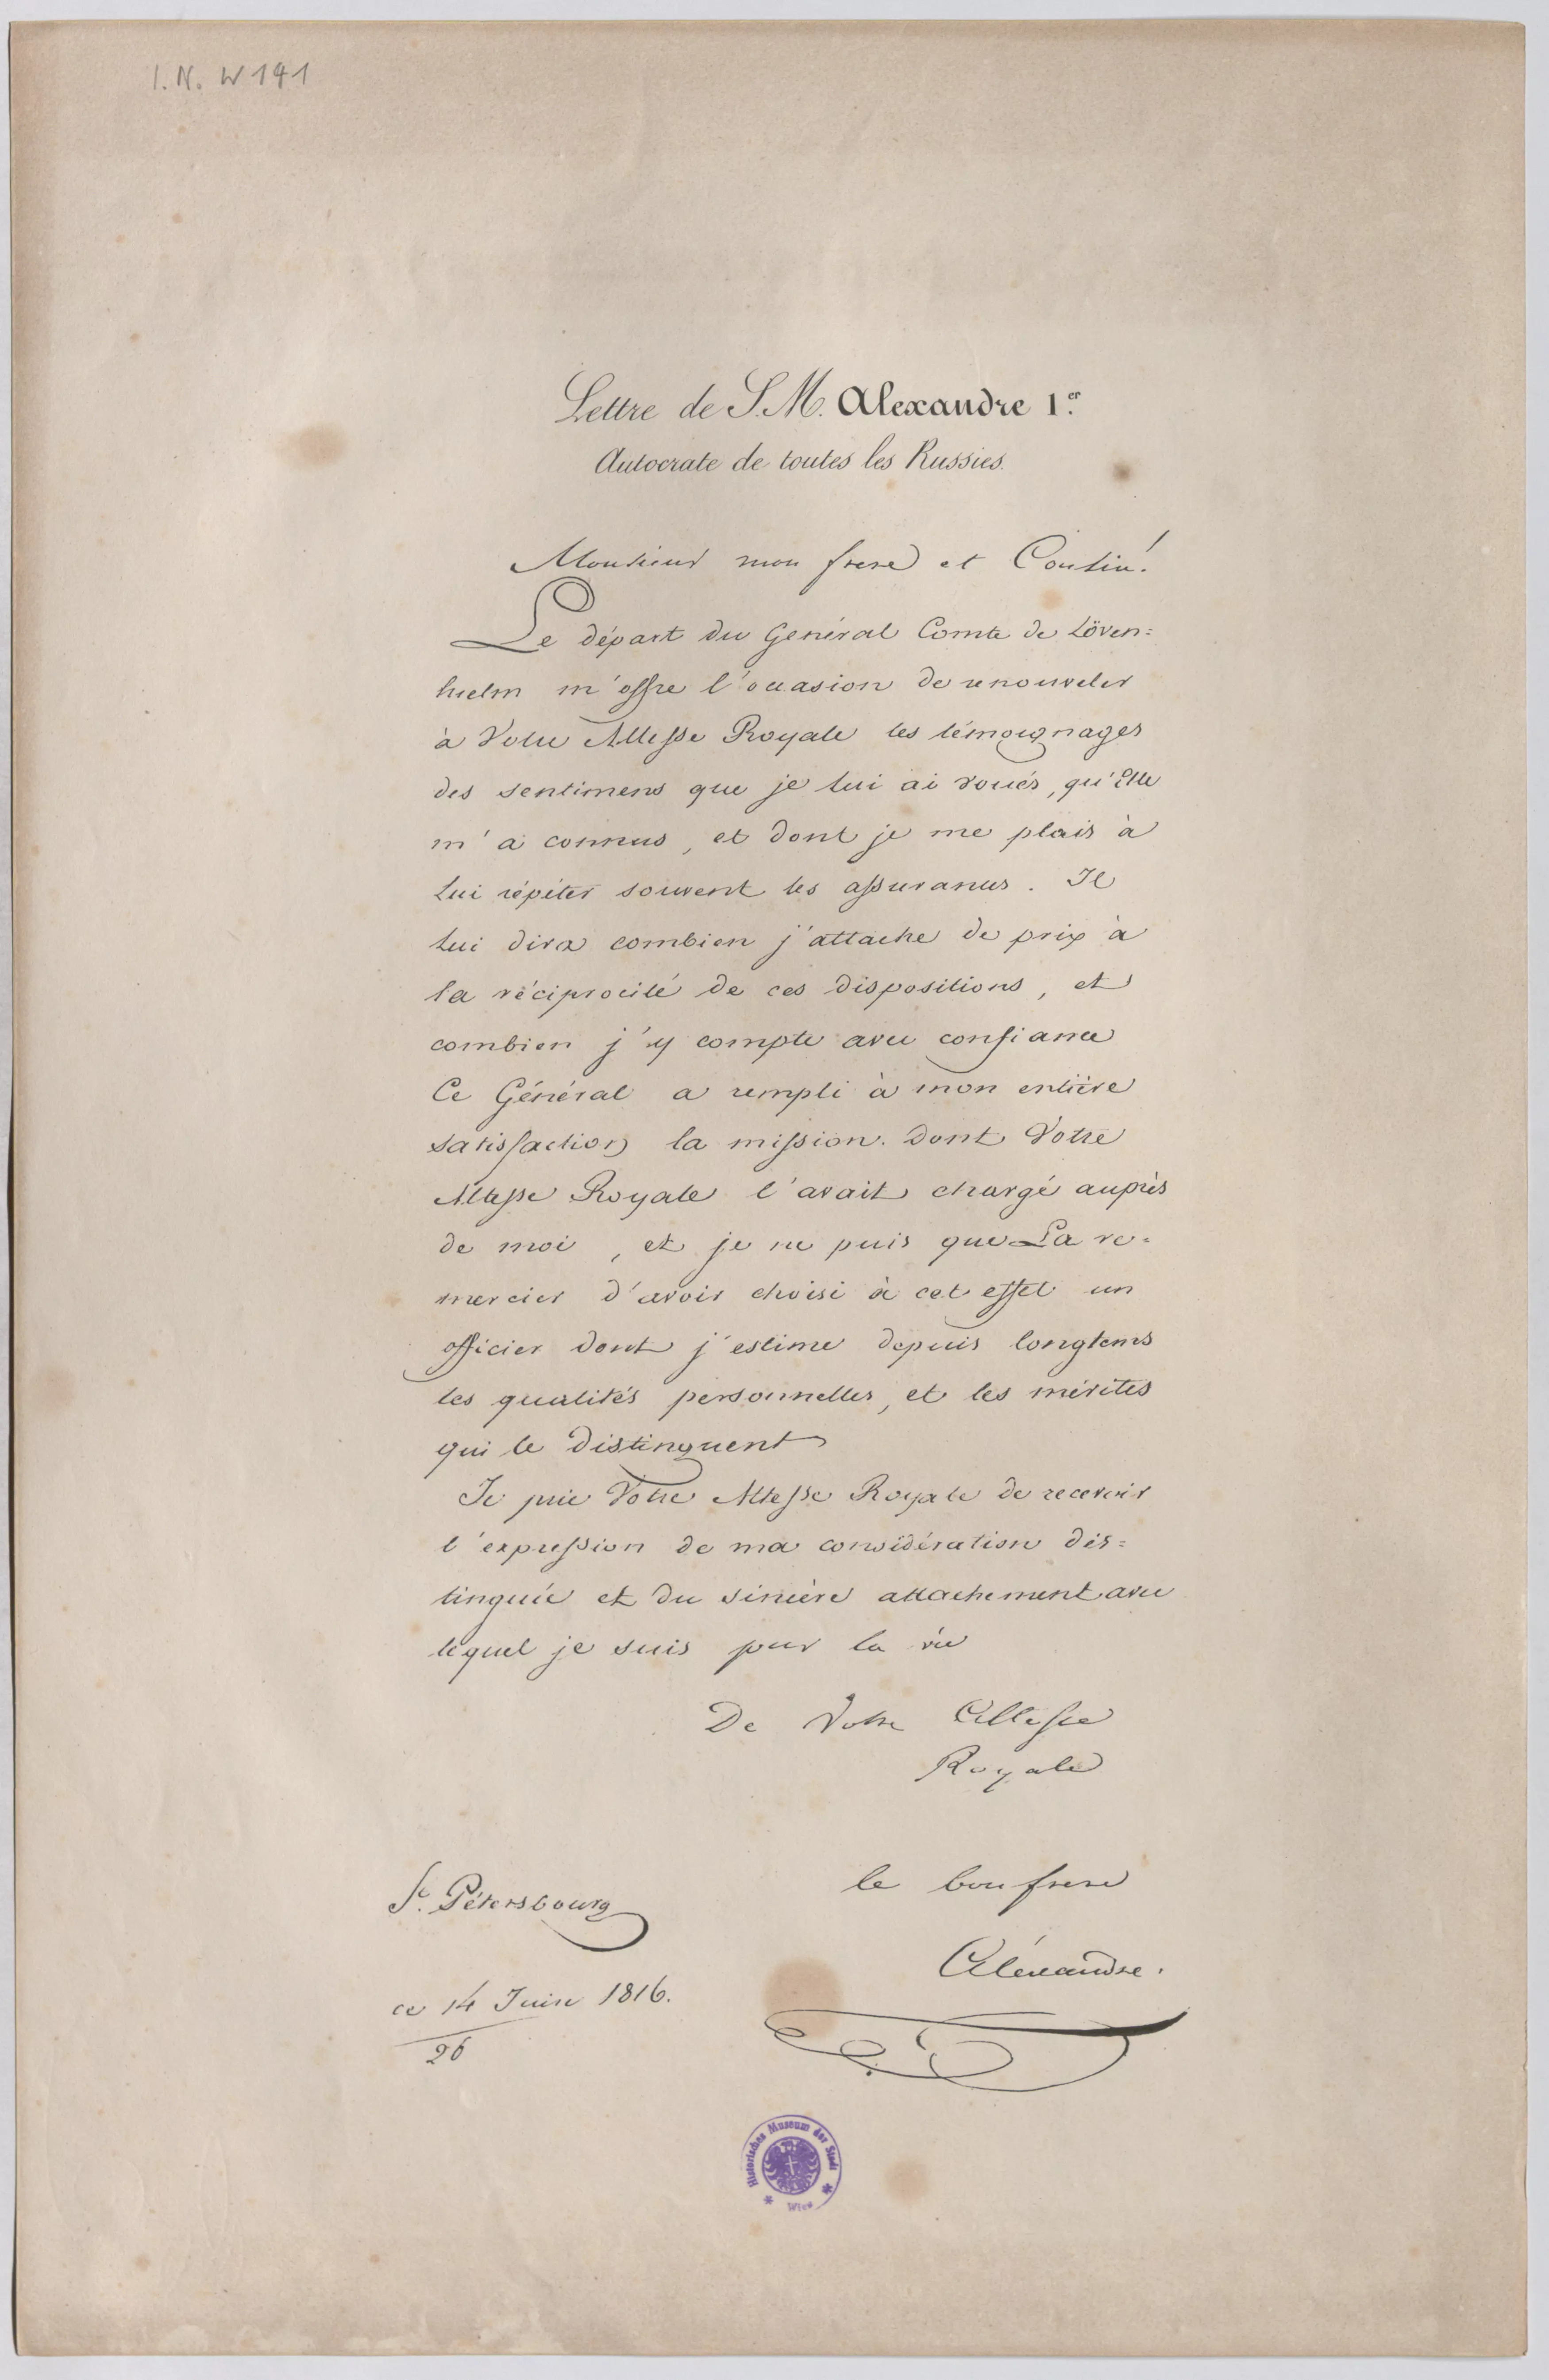 I.N. W 141
Lettre de S.M. Alexandre 1er.
Autocrate de toutes les Russies.
Monsieur mon frere et Cousin!
Le départ du Général Comte de Löven=
hielm m'offre l'occasion de renouveler
à Votre Altesse Royale les témoignages
des sentimens que je lui ai voués, qu'Elle
m'a connus, et dont je me plais à
Lui répéter souvent les assurances. Il
lui dira combien j'attache de prix à
la réciprocité de ces dispositions, et
combien j'y compte avec confiance
Ce Général a rempli à mon entière
satisfaction la mission. dont Votre
Altesse Royale l'avait chargé auprès
de moi, et je ne puis que La re=
mercier d'avoir choisi à cet effet un
officier dont j'estime depuis longtems
les qualités personnelles, et les mérites
qui le distinguent
Je prie Votre Altesse Royale de recevoir
l'expression de ma considération dis=
tinguée et du sincère attachement avec
lequel je suis pour la vie
De Votre Altesse
Royale
le bon frere
Alexandre.
St. Pétersbourg
ce 14 Juin 1816.
26
Historisches Museum der Stadt
* Wien *